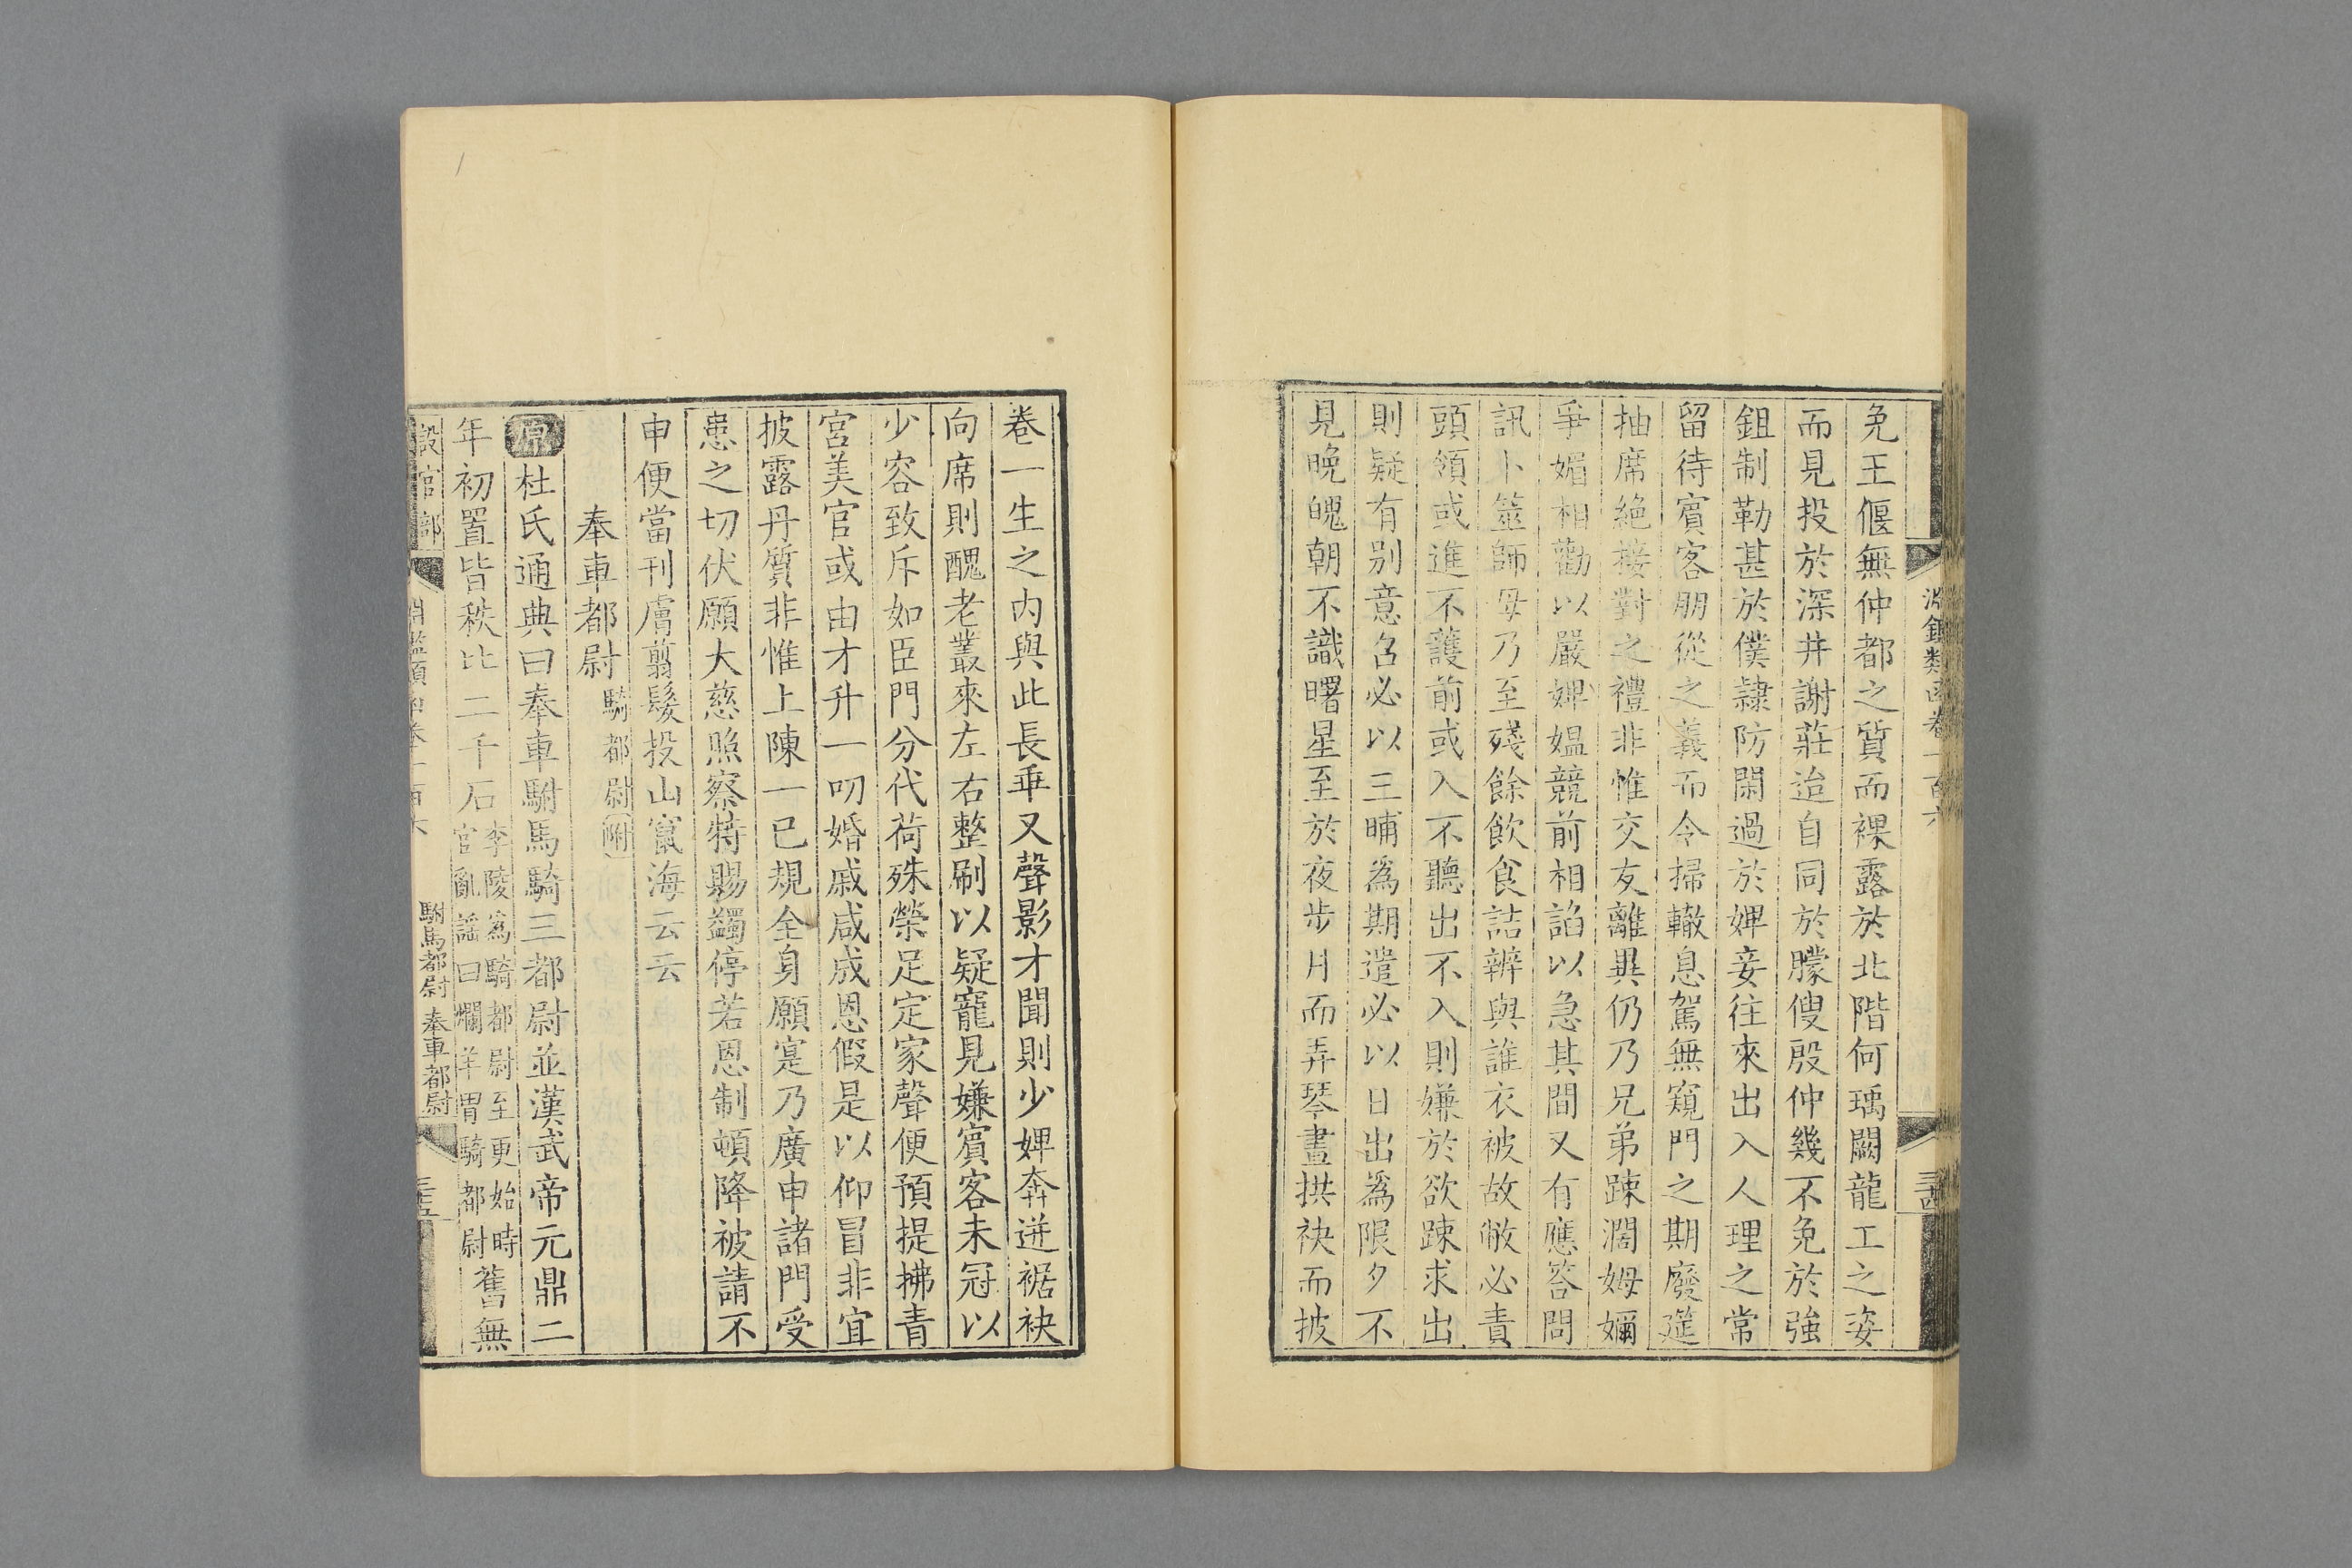 淵鑑類函卷一百六
三十四
免王偃無仲都之質而裸露於北階何瑀闕龍工之姿
而見投於深井謝莊迨自同於矇叟殷仲幾不免於強
鉏制勒甚於僕隷防閑過於婢妾往來出入人理之常
留待賓客朋從之義而令掃轍息駕無窺門之期廢筵
抽席絶接對之禮非惟交友離異仍乃兄弟踈濶姆嬭
爭媚相勸以嚴婢媪競前相諂以急其間又有應答問
訊卜筮師母乃至殘餘飲食詰辨與誰衣被故敝必責
頭領或進不護前或入不聽出不入則嫌於欲踈求出
則疑有別意召必以三晡爲期遣必以日出爲限夕不
見晚魄朝不識曙星至於夜步月而弄琴晝拱袂而披
卷一生之内與此長乖又聲影才聞則少婢奔迸裾袂
向席則醜老叢來左右整刷以疑寵見嫌賓客未冠以
少容致斥如臣門分代荷殊榮足定家聲便預提拂青
宮美官或由才升一叨婚戚咸成恩假是以仰冒非宜
披露丹質非惟上陳一已規全身願寔乃廣申諸門受
患之切伏願大慈照察特賜蠲停若恩制頓降被請不
申便當刊膚翦髮投山竄海云云
奉車都尉 騎都尉附
原 杜氏通典曰奉車駙馬騎三都尉並漢武帝元鼎二
年初置皆秩比二千石 李陵爲騎都尉至更始時
官亂謡曰爛羊胃騎都尉 舊無
設官部
淵鑑類函卷一百六
駙馬都尉 奉車都尉
三十五